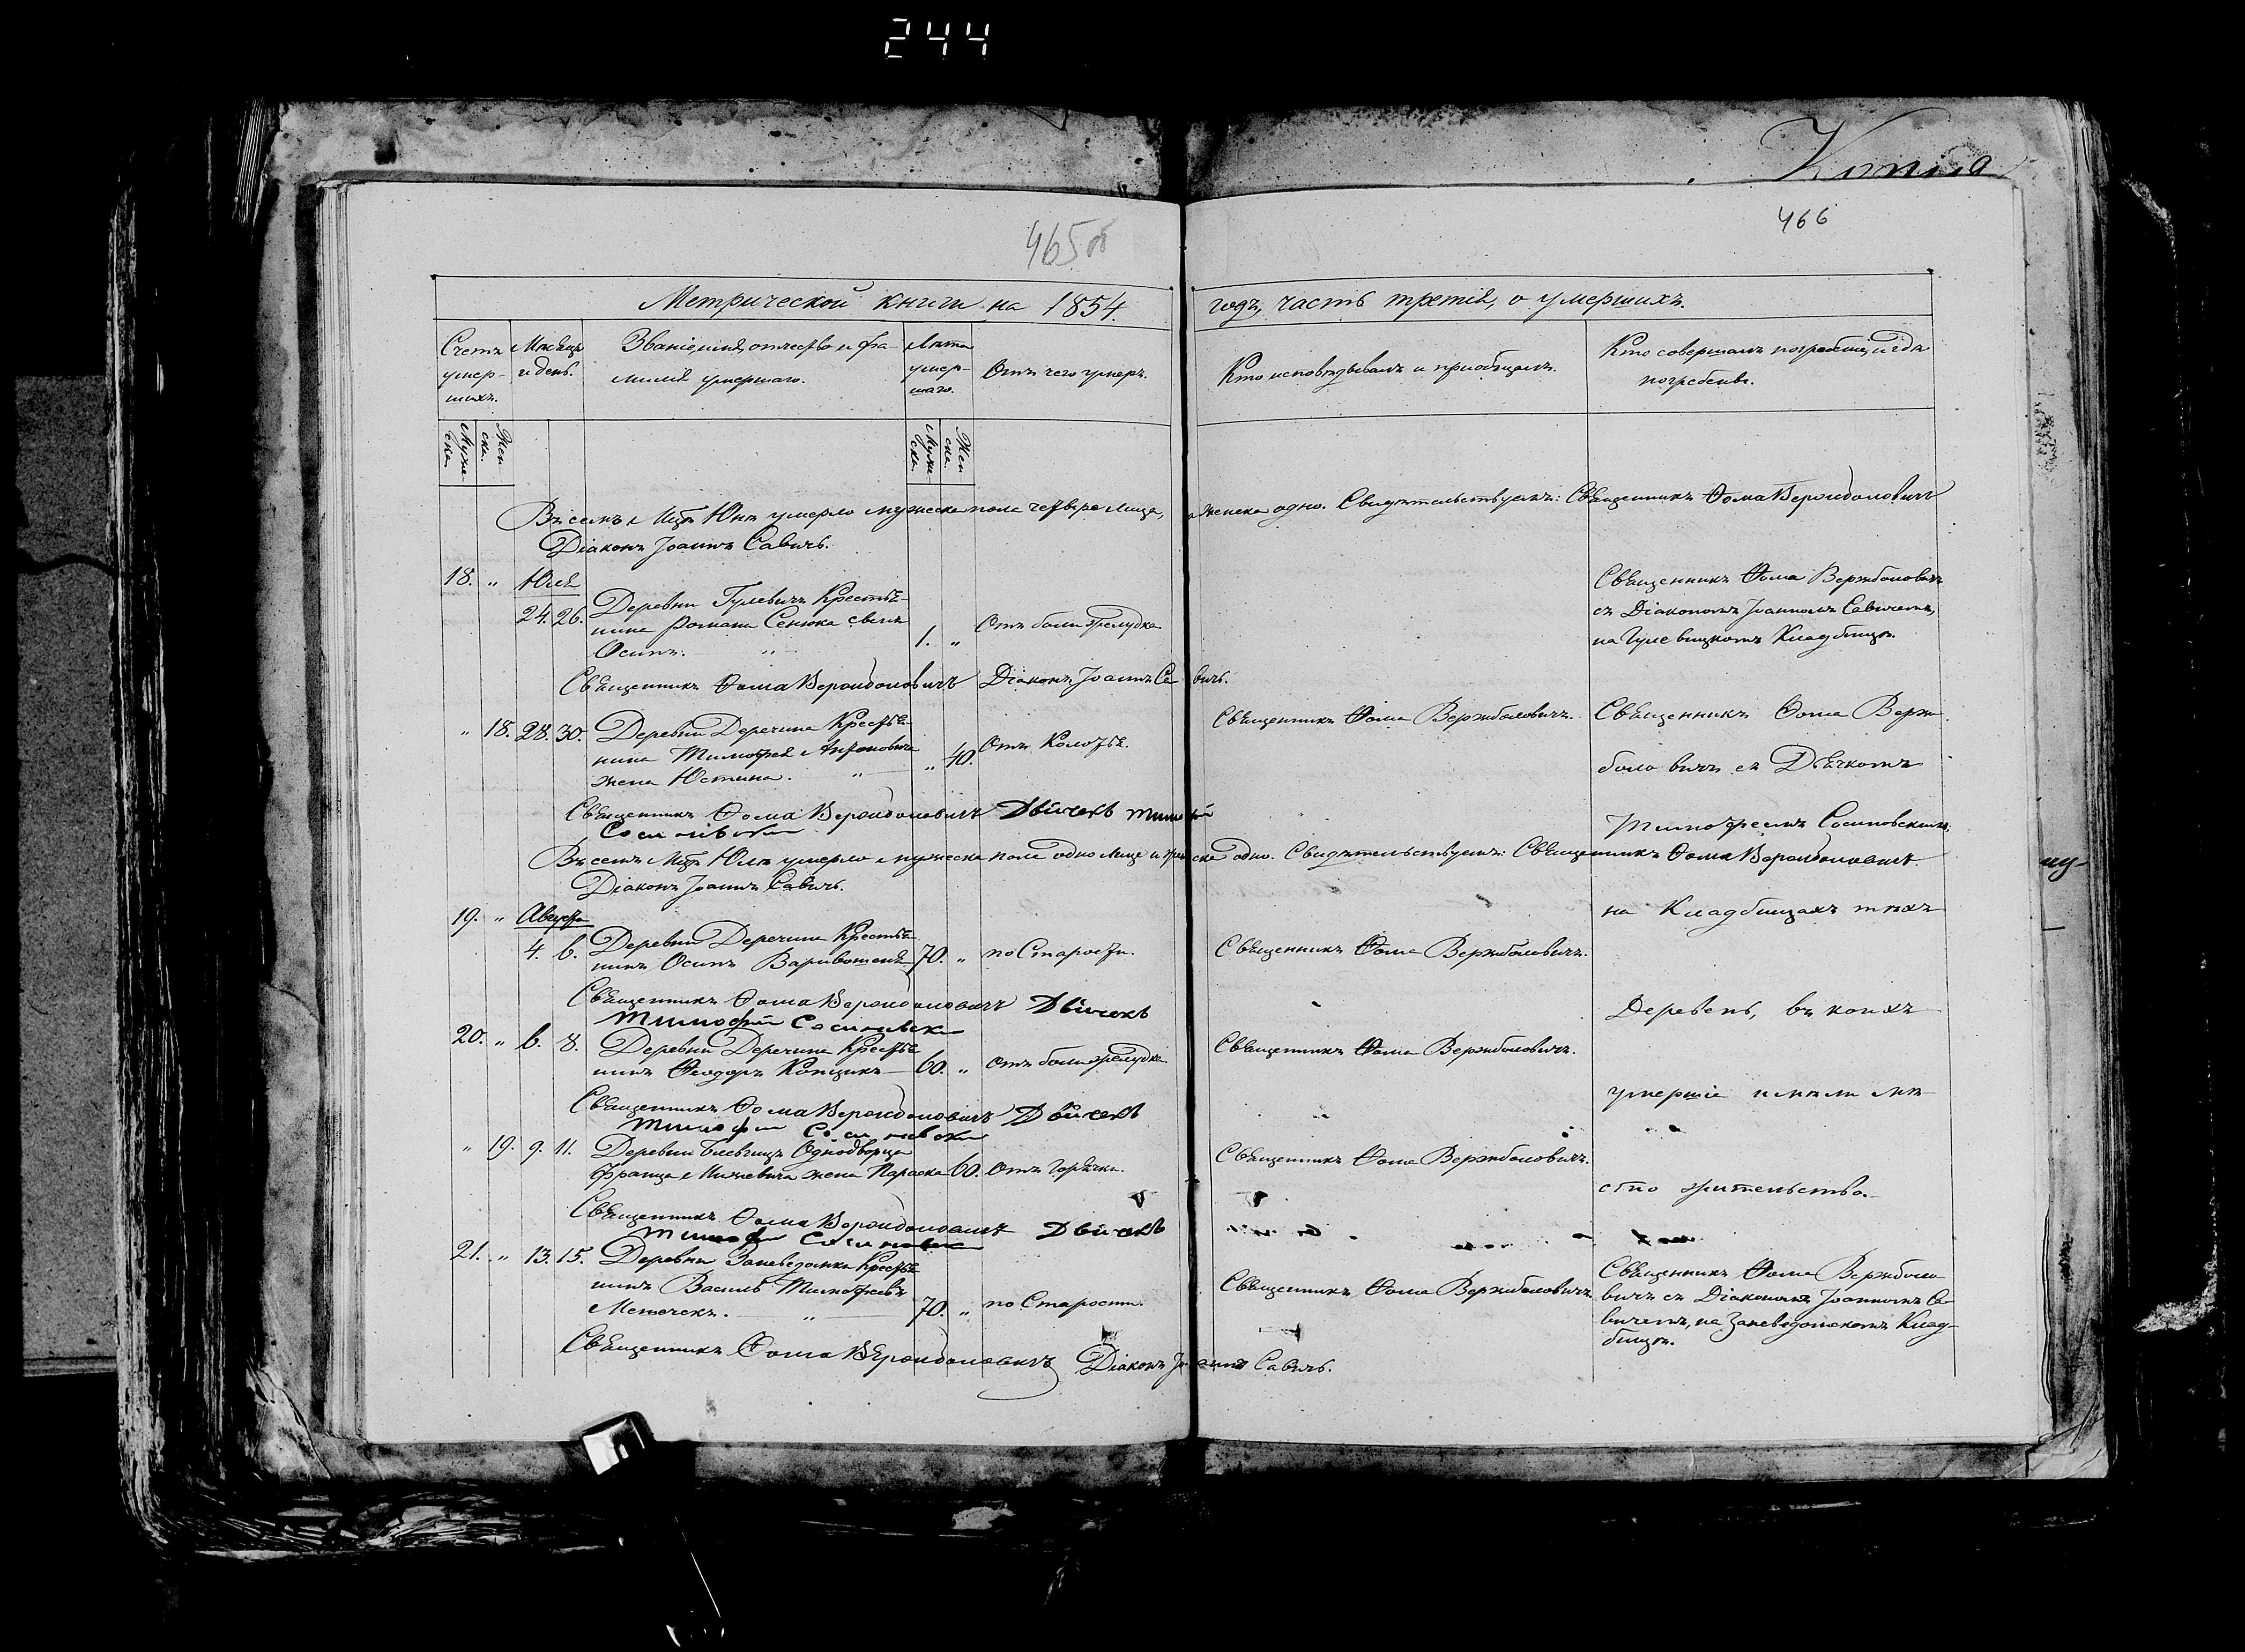 244
Копія
465об
466
Метрической книги на 1854.
годъ, часть третія, о умершихъ.
Счетъ умер-шихъ.
Мѣсяцъ и день.
Званіе, имя, отчество и фа-
милія умершаго.
Лѣта умер-шаго.
Отъ чего умеръ.
Кто исповѣдывалъ и пріобщалъ.
Кто совершалъ погребеніе, и гдѣ
погребены.
Муже-ска.
Жен-ска.
Муже-ска.
Жен-ска.
Въ семъ Мцѣ Юнѣ умерло мужеска пола четверо лица, а женска одно. Свидѣтельствуемъ: Священникъ Ѳома Вержболовичъ
Діаконъ Іоаннъ Савичъ.
18. " Юля
24. 26. Деревни Гулевичъ Крестья-
нина Романа Сенюка сынъ
Осипъ. " 1. " Отъ боли желудка
Священникъ Ѳома Вержболовичъ
съ Діакономъ Іоанномъ Савичемъ,
на Гулевицкомъ Кладбищѣ.
Священникъ Ѳома Вержболовичъ Діаконъ Іоаннъ Савичъ.
" 18. 28. 30. Деревни Деречина Крестья-
нина Тимофея Антоновича
жена Юстина. " " 40. Отъ Колотья.
Священникъ Ѳома Вержболовичъ.
Священникъ Ѳома Верж-
боловичъ съ Дьячкомъ
Священникъ Ѳома Вержболовичъ Дьячекъ Тимофей
Сосиновскій
Тимофеемъ Сосиновскимъ,
Въ семъ Мцѣ Юлѣ умерло мужеска пола одно лице и женска одно. Свидѣтельствуемъ: Священникъ Ѳома Вержболовичъ
Діаконъ Іоаннъ Савичъ.
19. " Августа
на Кладбищахъ тѣхъ
4. 6. Деревни Деречина Крестья-
нинъ Осипъ 70. " по Старости.
Священникъ Ѳома Вержболовичъ.
Священникъ Ѳома Вержболовичъ Дьячекъ
Тимофей Сосиновскій
Деревень, въ коихъ
20. " 6. 8. Деревни Деречина Крестья-
нинъ Ѳеодоръ Копцикъ 60. " Отъ боли желудка.
Священникъ Ѳома Вержболовичъ.
умершіе имѣли мѣ-
Священникъ Ѳома Вержболовичъ Дьячекъ
Тимофей Сосиновскій
" 19. 9. 11. Деревни Однодворца
Франца Мижевича жена Параска 60. Отъ Горячки.
Священникъ Ѳома Вержболовичъ.
сто жительства.
Священникъ Ѳома Вержболовичъ Дьячекъ
Тимофей Сосиновскій
21. " 13. 15. Деревни Заневедомки Крестья-
нинъ Василь Тимофѣевъ
Метечекъ. " 70. " по Старости.
Священникъ Ѳома Вержболовичъ.
Священникъ Ѳома Вержболо-
вичъ съ Діакономъ Іоанномъ Са-
вичемъ, на Заневедомскомъ Клад-
бищѣ.
Священникъ Ѳома Вержболовичъ Діаконъ Іоаннъ Савичъ.